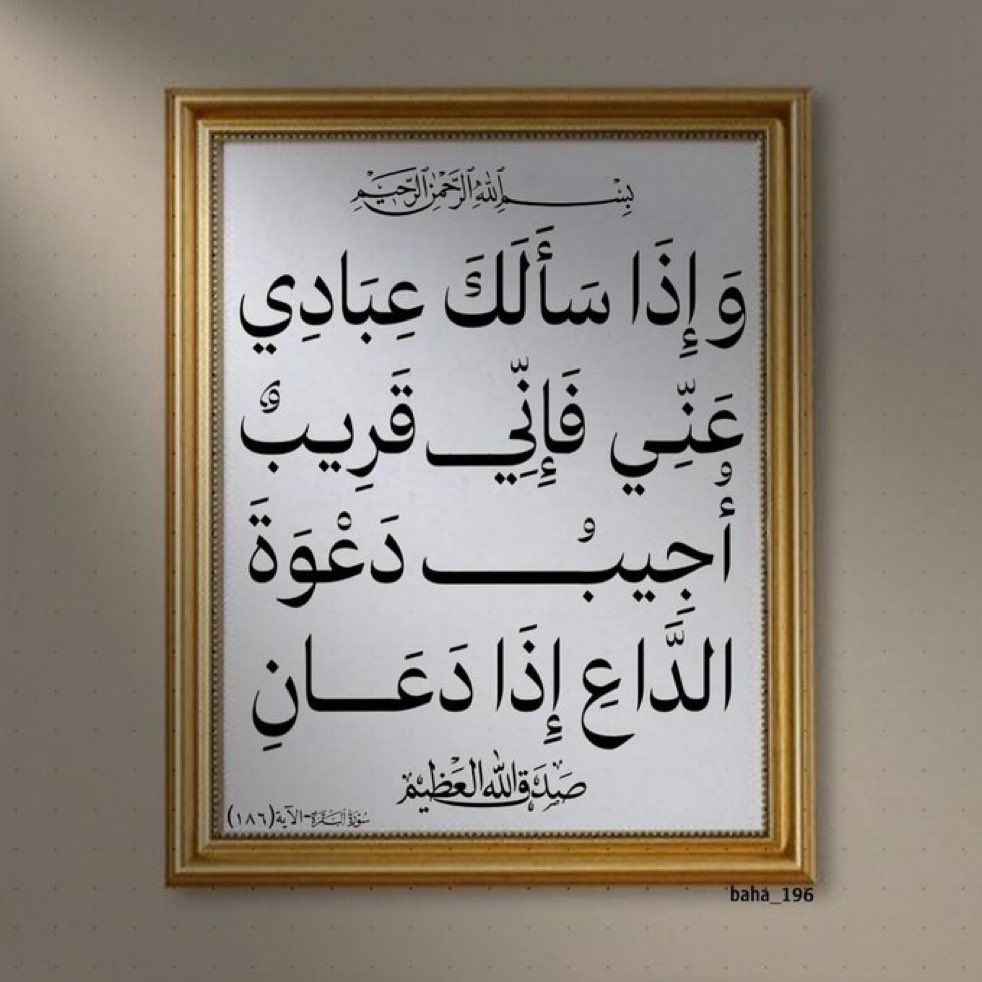 بِسْمِ اللَّهِ الرَّحْمَٰنِ الرَّحِيمِ
وَإِذَا سَأَلَكَ عِبَادِي
عَنِّي فَإِنِّي قَرِيبٌ
أُجِيبُ دَعْوَةَ
الدَّاعِ إِذَا دَعَانِ
صَدَقَ اللَّهُ الْعَظِيم
سُورَةُ الْبَقَرَةِ - الآية (١٨٦)
baha_196